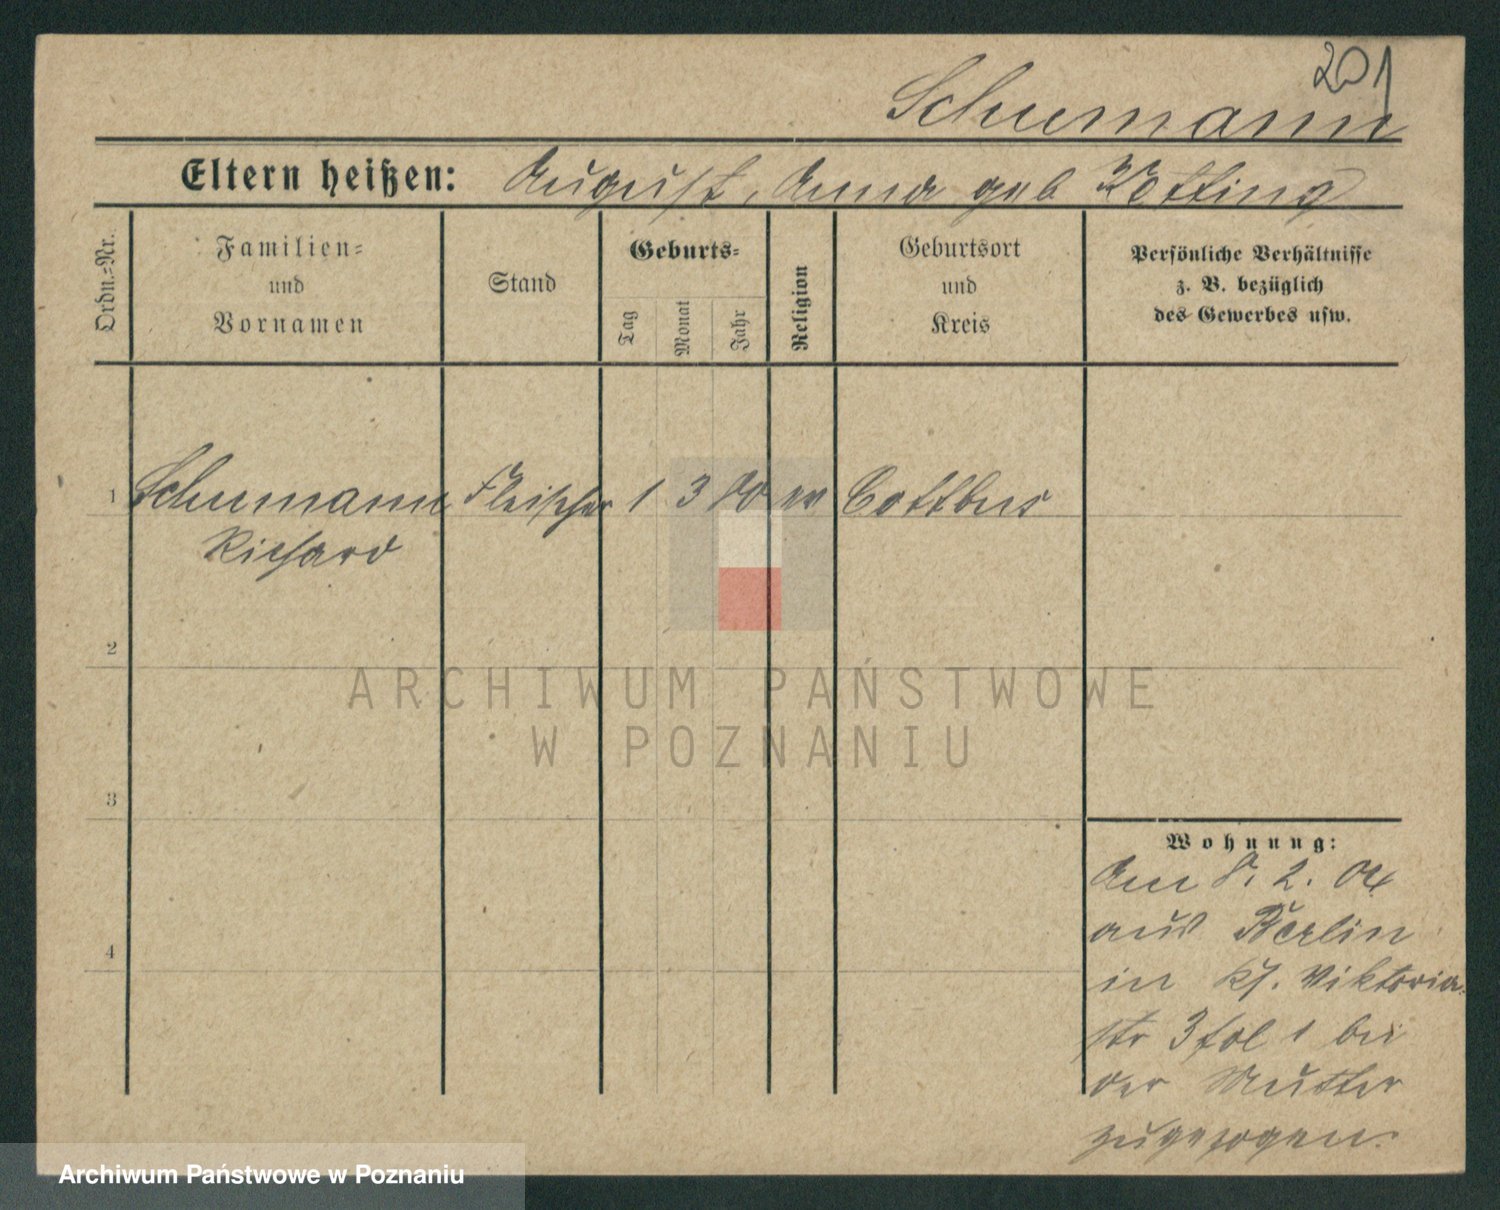 201
Schumann
Eltern heißen: August, Anna geb Kötting
Ordn.=Nr.
Familien=
und
Vornamen
Stand
Geburts=
Tag
Monat
Jahr
Religion
Geburtsort
und
Kreis
Persönliche Verhältnisse
z. B. bezüglich
des Gewerbes usw.
1 Schumann Fleischer 1 3 80 ev Cottbus
Richard
2
3
4
Wohnung:
Am 8. 2. 04
aus Berlin
in Viktoria-
str 3 fol 1 bei
der Mutter
zugezogen.
ARCHIWUM PAŃSTWOWE
W POZNANIU
Archiwum Państwowe w Poznaniu